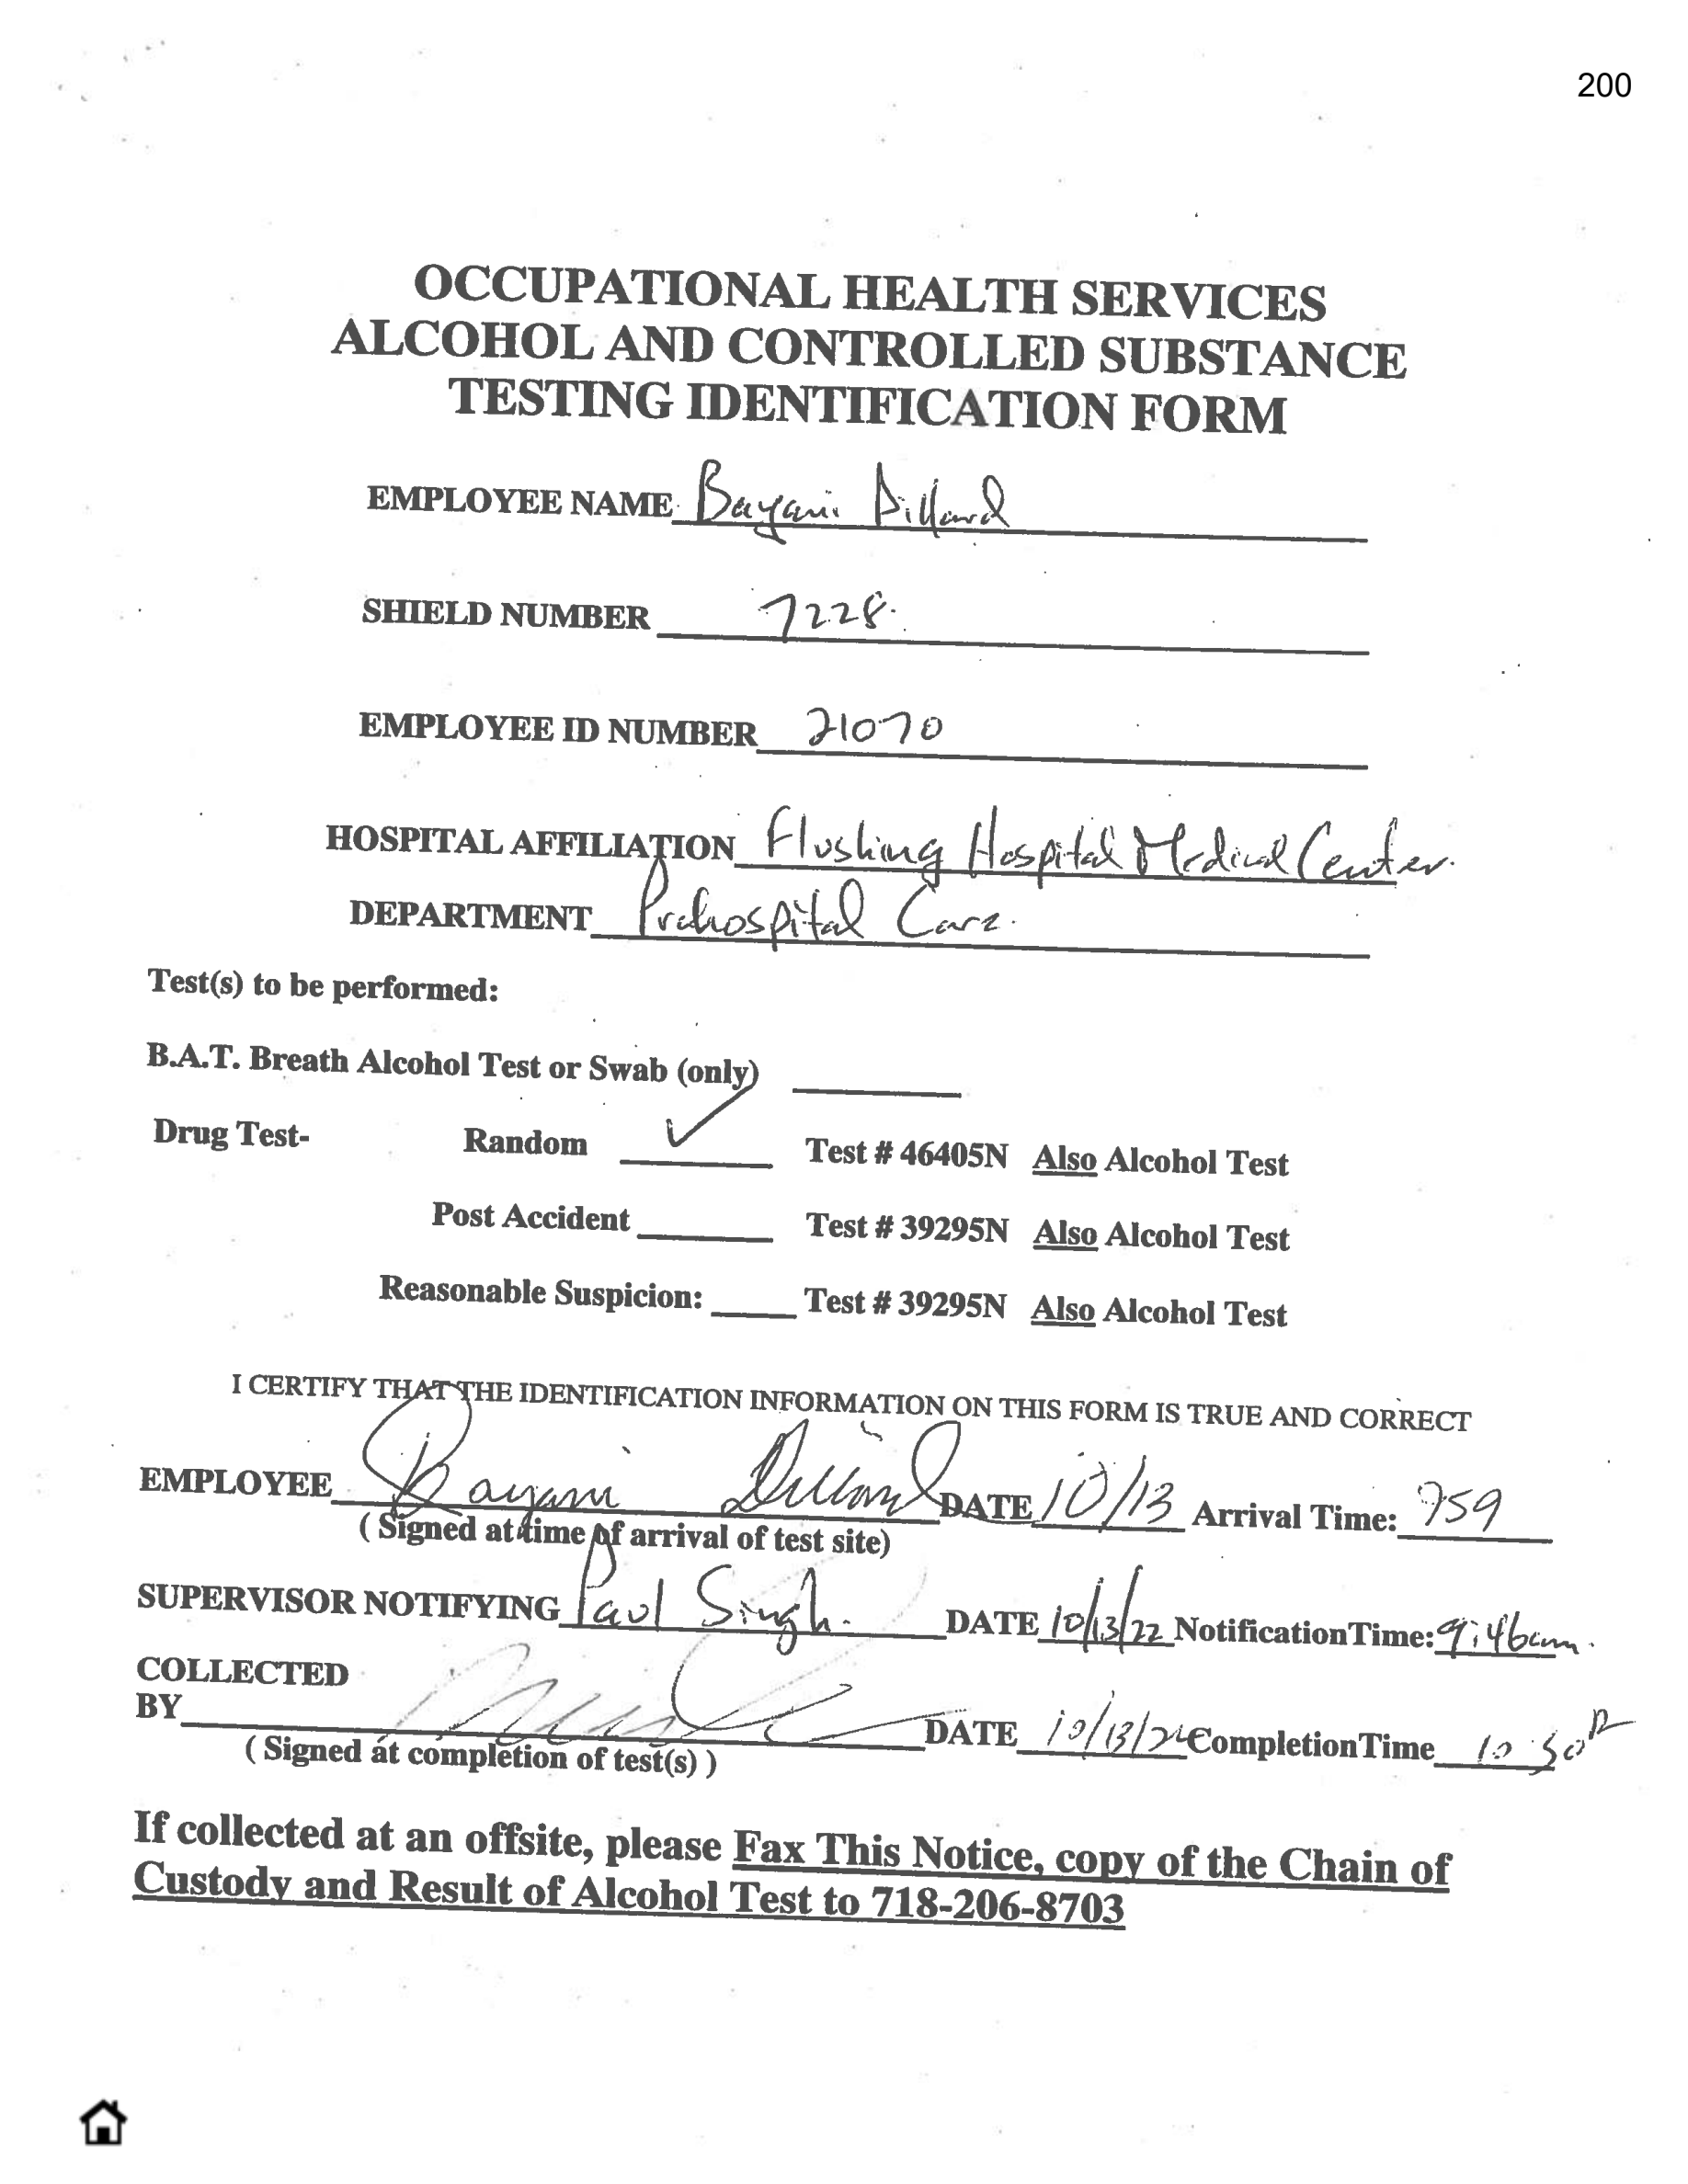 200
OCCUPATIONAL HEALTH SERVICES
ALCOHOL AND CONTROLLED SUBSTANCE
TESTING IDENTIFICATION FORM
EMPLOYEE NAME Bayani Dillard
SHIELD NUMBER 7228.
EMPLOYEE ID NUMBER 21070
HOSPITAL AFFILIATION Flushing Hospital Medical Center.
DEPARTMENT Prehospital Care.
Test(s) to be performed:
B.A.T. Breath Alcohol Test or Swab (only)
Drug Test- Random ✓ Test # 46405N Also Alcohol Test
Post Accident Test # 39295N Also Alcohol Test
Reasonable Suspicion: Test # 39295N Also Alcohol Test
I CERTIFY THAT THE IDENTIFICATION INFORMATION ON THIS FORM IS TRUE AND CORRECT
EMPLOYEE Bayani Dillard DATE 10/13 Arrival Time: 959
( Signed at time of arrival of test site)
SUPERVISOR NOTIFYING Paul Singh. DATE 10/13/22 NotificationTime: 9:46am.
COLLECTED
BY DATE 10/13/22 CompletionTime
( Signed at completion of test(s) )
If collected at an offsite, please Fax This Notice, copy of the Chain of
Custody and Result of Alcohol Test to 718-206-8703